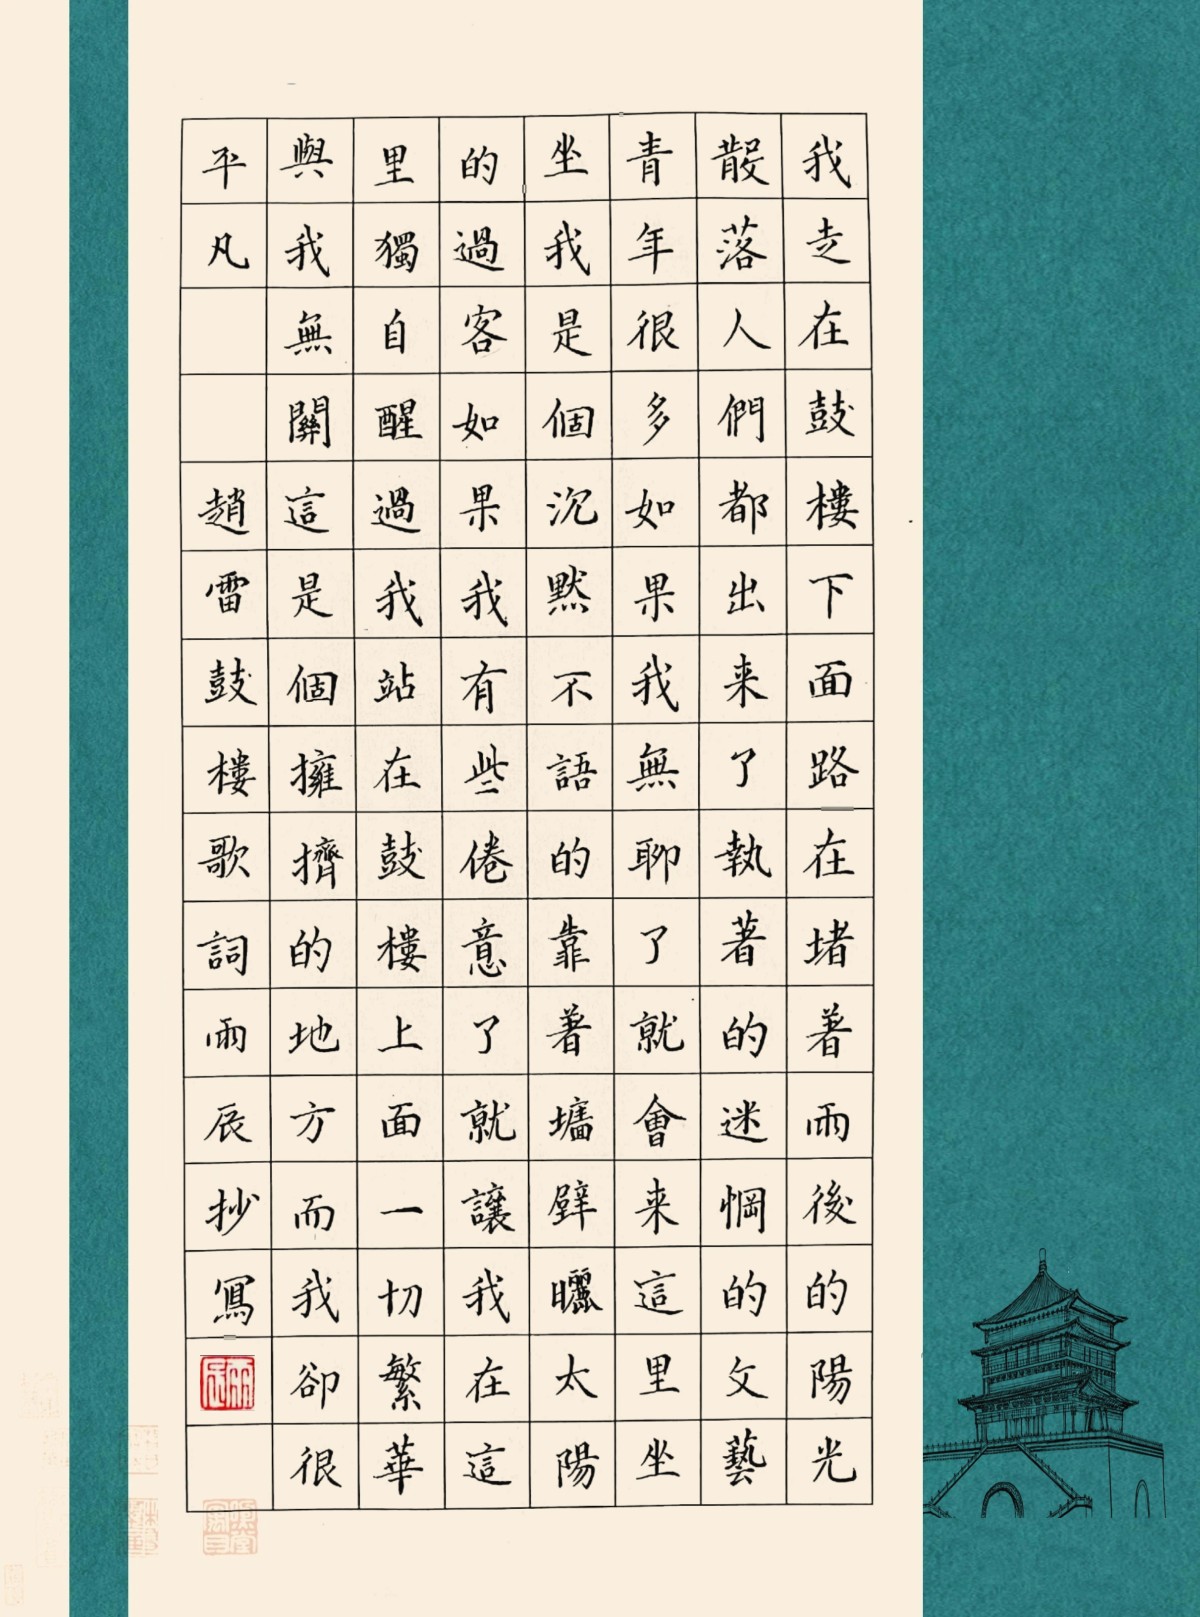 我走在鼓樓下面路在堵著雨後的陽光
散落人們都出来了執著的迷惘的文藝
青年很多如果我無聊了就會来這里坐
坐我是個沉默不語的靠著墻壁曬太陽
的過客如果我有些倦意了就讓我在這
里獨自醒過我站在鼓樓上面一切繁華
與我無關這是個擁擠的地方而我卻很
平凡 趙雷鼓樓歌詞雨辰抄寫
雨辰